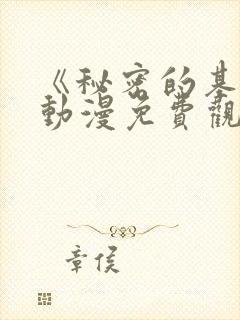 《秘密的基
動漫免費觀
章侯